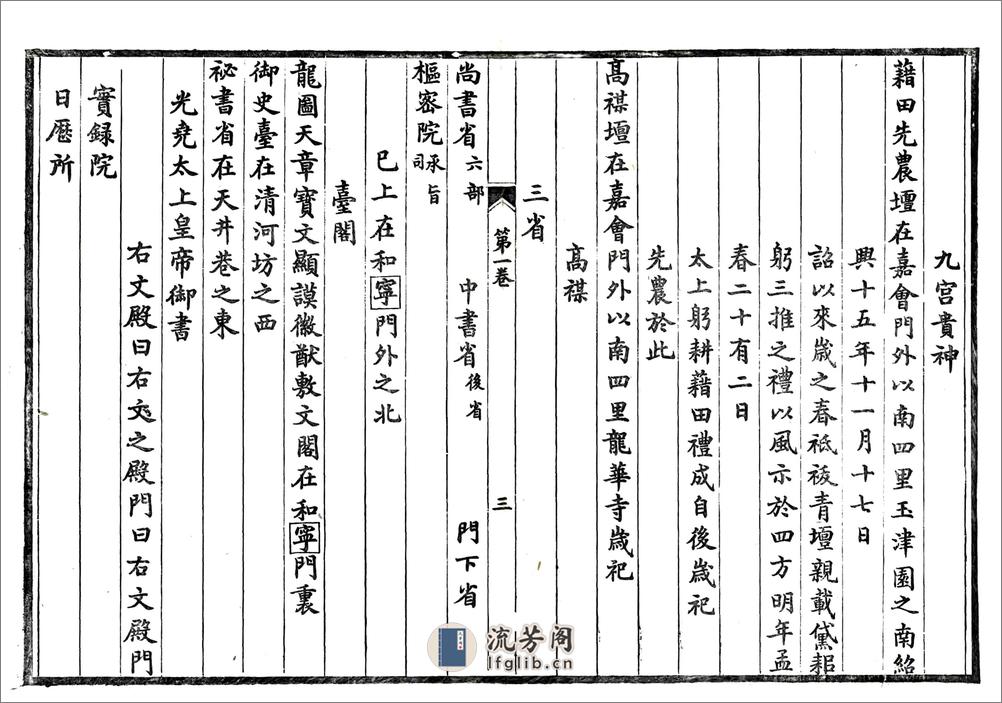 九宫貴神
藉田先農壇在嘉會門外以南四里玉津園之南紹
興十五年十一月十七日
詔以來歳之春祗祓青壇親載黛耜
躬三推之禮以風示於四方明年孟
春二十有二日
太上躬耕藉田禮成自後歳祀
先農於此
髙禖
髙禖壇在嘉會門外以南四里龍華寺歳祀
三省
第一卷 三
尚書省六部 中書省後省 門下省
樞密院承旨司
已上在和寧門外之北
臺閣
龍圖天章寶文顯謨徽猷敷文閣在和寧門裏
御史臺在清河坊之西
祕書省在天井巷之東
光堯太上皇帝御書
右文殿曰右文之殿殿門曰右文殿門
實錄院
日歷所
流芳阁
lfglib.cn